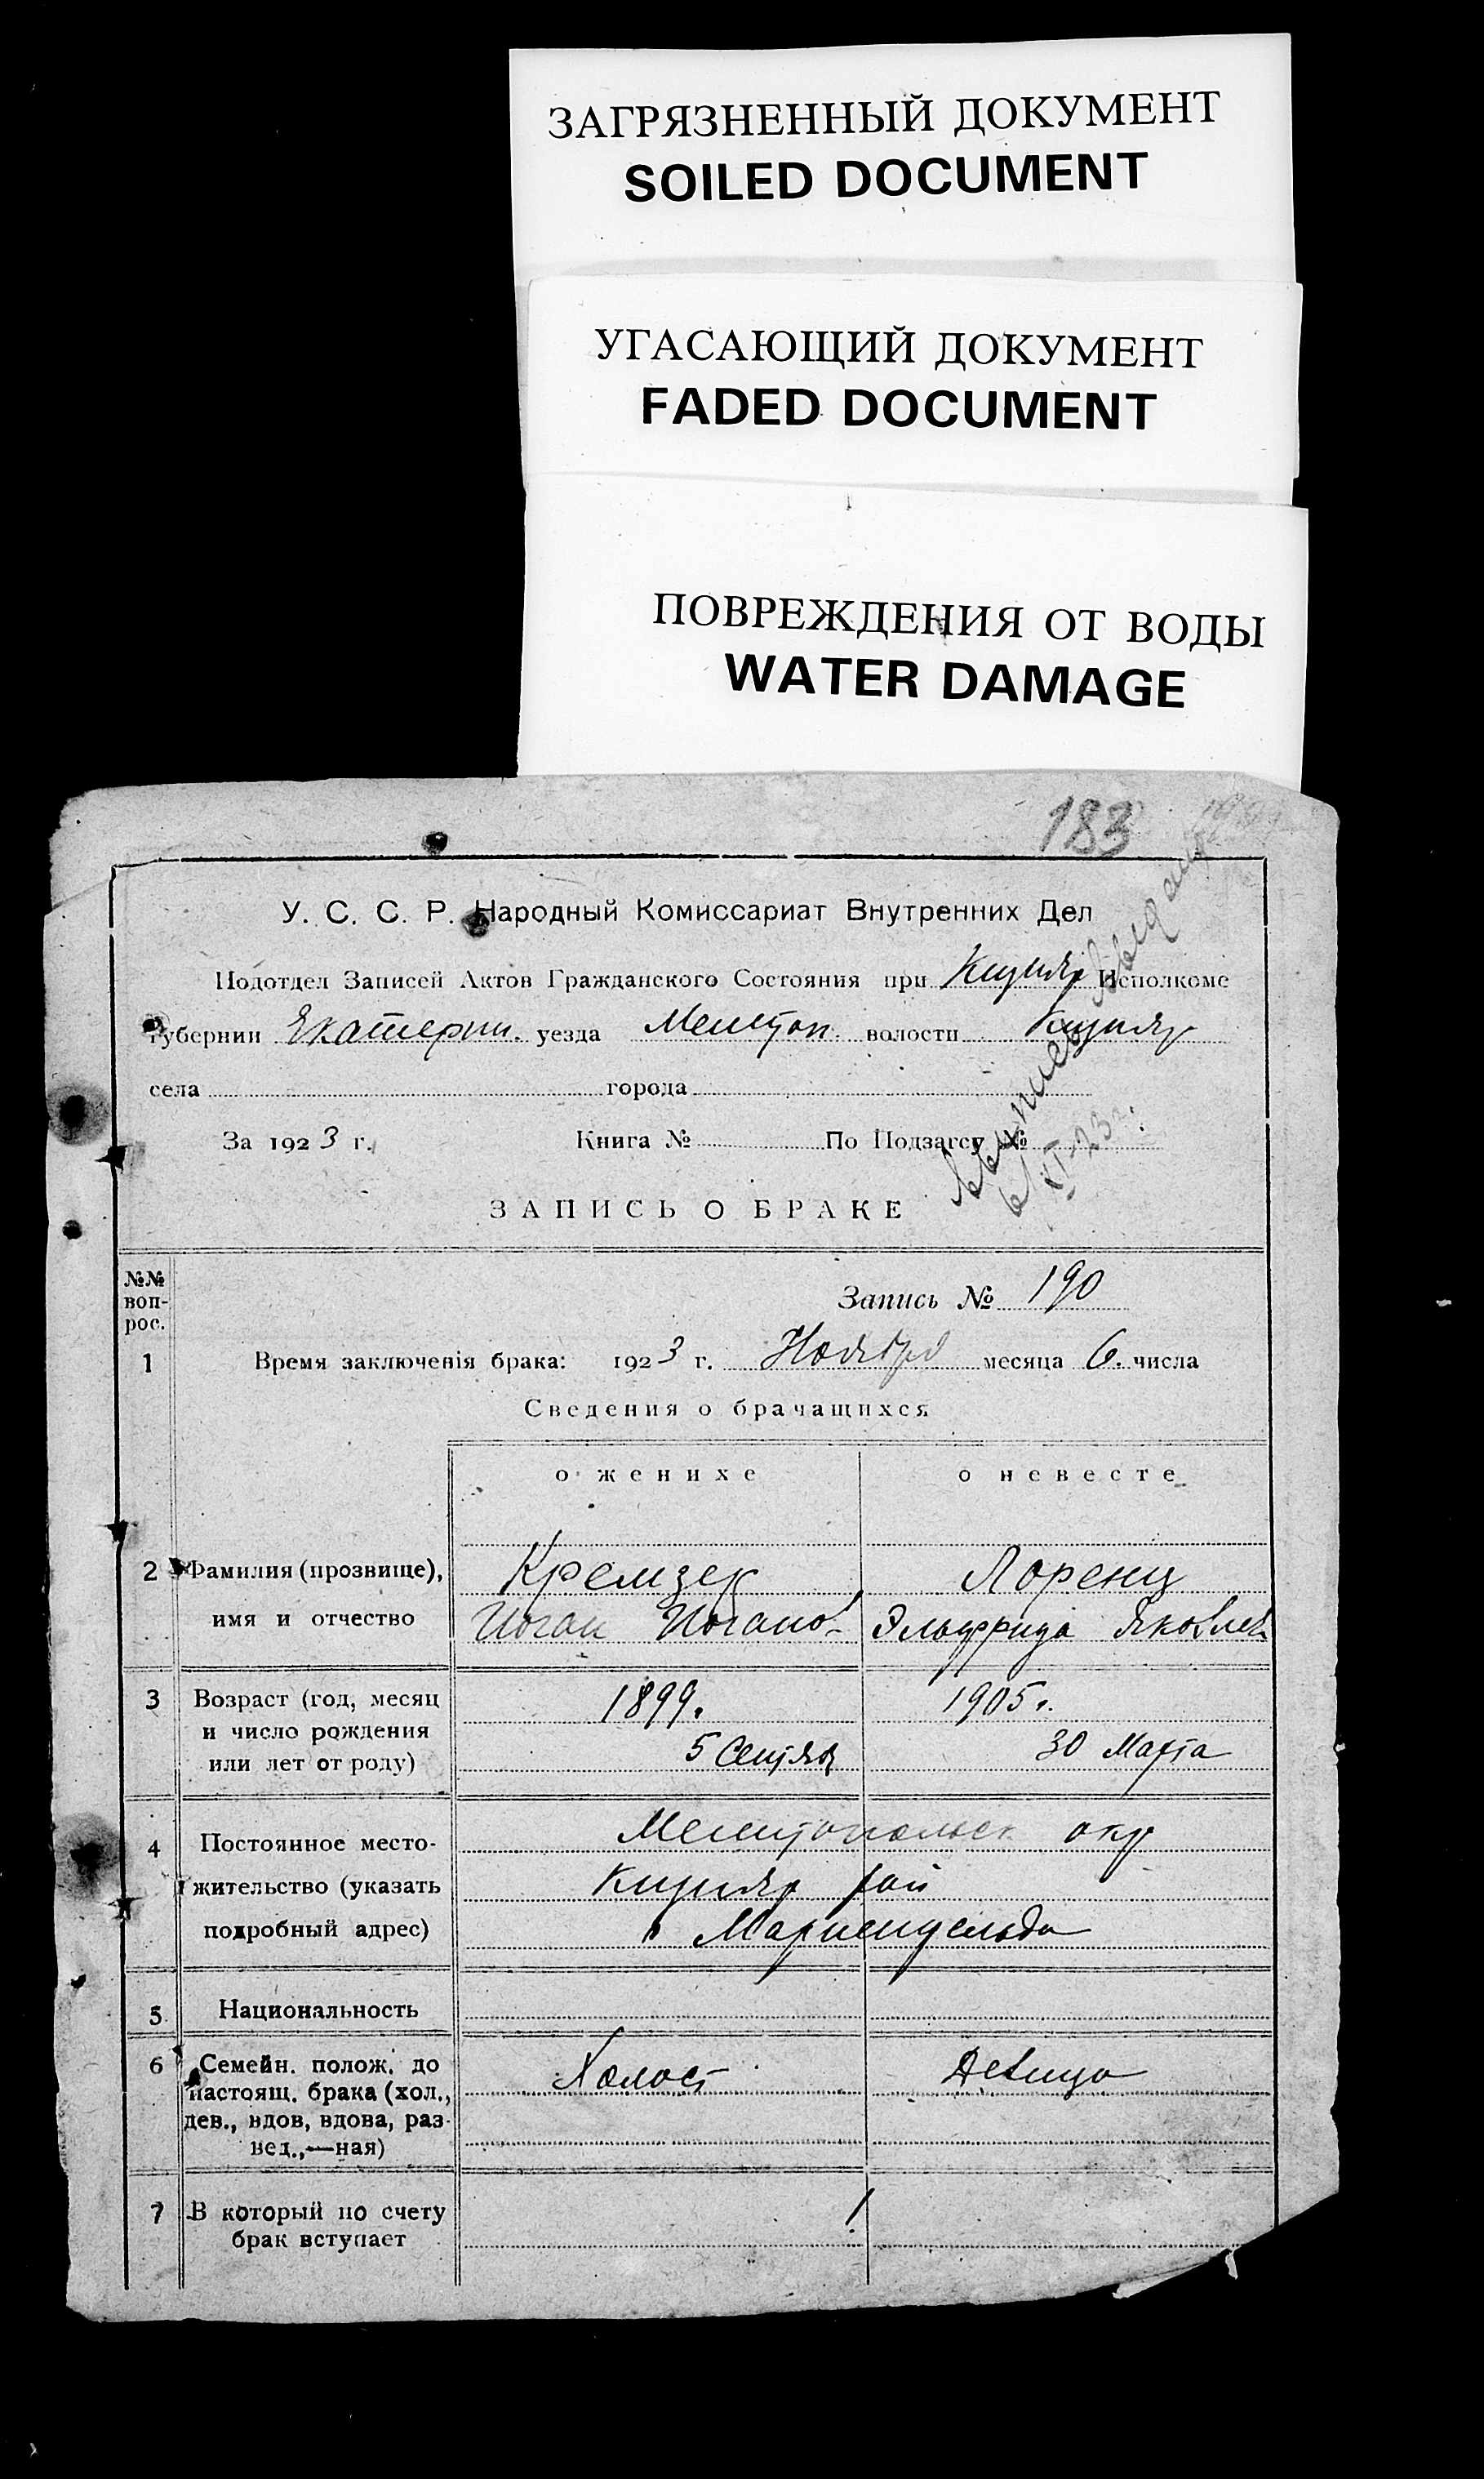 ЗАГРЯЗНЕННЫЙ ДОКУМЕНТ
SOILED DOCUMENT
УГАСАЮЩИЙ ДОКУМЕНТ
FADED DOCUMENT
ПОВРЕЖДЕНИЯ ОТ ВОДЫ
WATER DAMAGE
183
У. С. С. Р. Народный Комиссариат Внутренних Дел
Подотдел Записей Актов Гражданского Состояния при Кизияр Исполкоме
губернии Екатерин. уезда Мелитоп. волости Кизияр
села города
За 1923 г. Книга № По Подзагсу №
XI-23 г.
ЗАПИСЬ О БРАКЕ
№№ воп-рос.
Запись № 190
1 Время заключенія брака: 1923 г. Ноября месяца 6. числа
Сведения о брачащихся
о женихе о невесте
2 Фамилия (прозвище), Кремзер Лоренц
имя и отчество Иоган Иоганов- Эльфрида Яковлев
3 Возраст (год, месяц 1899. 1905 г.
и число рождения
или лет от роду) 5 Сентяб 30 Марта
4 Постоянное место- Мелитопольск окр
жительство (указать Кизияр рай
подробный адрес) Мариенфельда
5 Национальность
6 Семейн. полож. до Холост Девица
настоящ. брака (хол.,
дев., вдов, вдова, раз-
вед.,—ная)
7 В который по счету
брак вступает